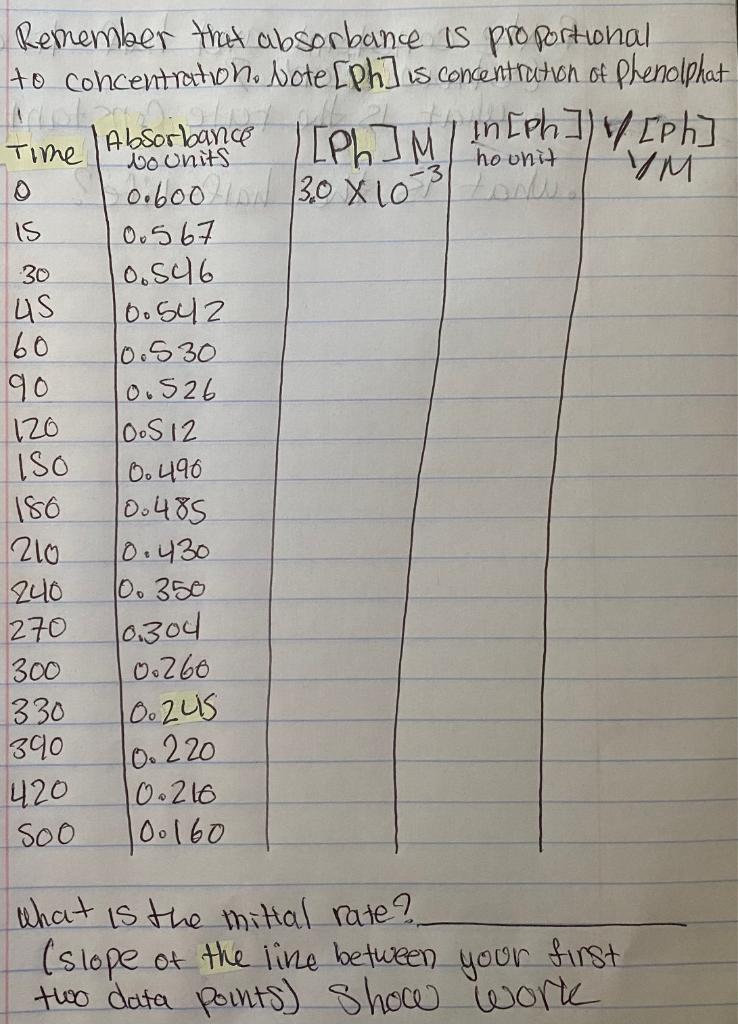 Remember that absorbance is proportional
to concentration. Note [Ph] is concentration of Phenolphat
Time | Absorbance no units | [Ph] M | ln [Ph] no unit | 1/[Ph] 1/M
0 0.600 3.0 X 10⁻³
15 0.567
30 0.546
45 0.542
60 0.530
90 0.526
120 0.512
150 0.490
180 0.485
210 0.430
240 0.350
270 0.304
300 0.260
330 0.245
390 0.220
420 0.210
500 0.160
What is the initial rate?
(slope of the line between your first
two data points) Show work